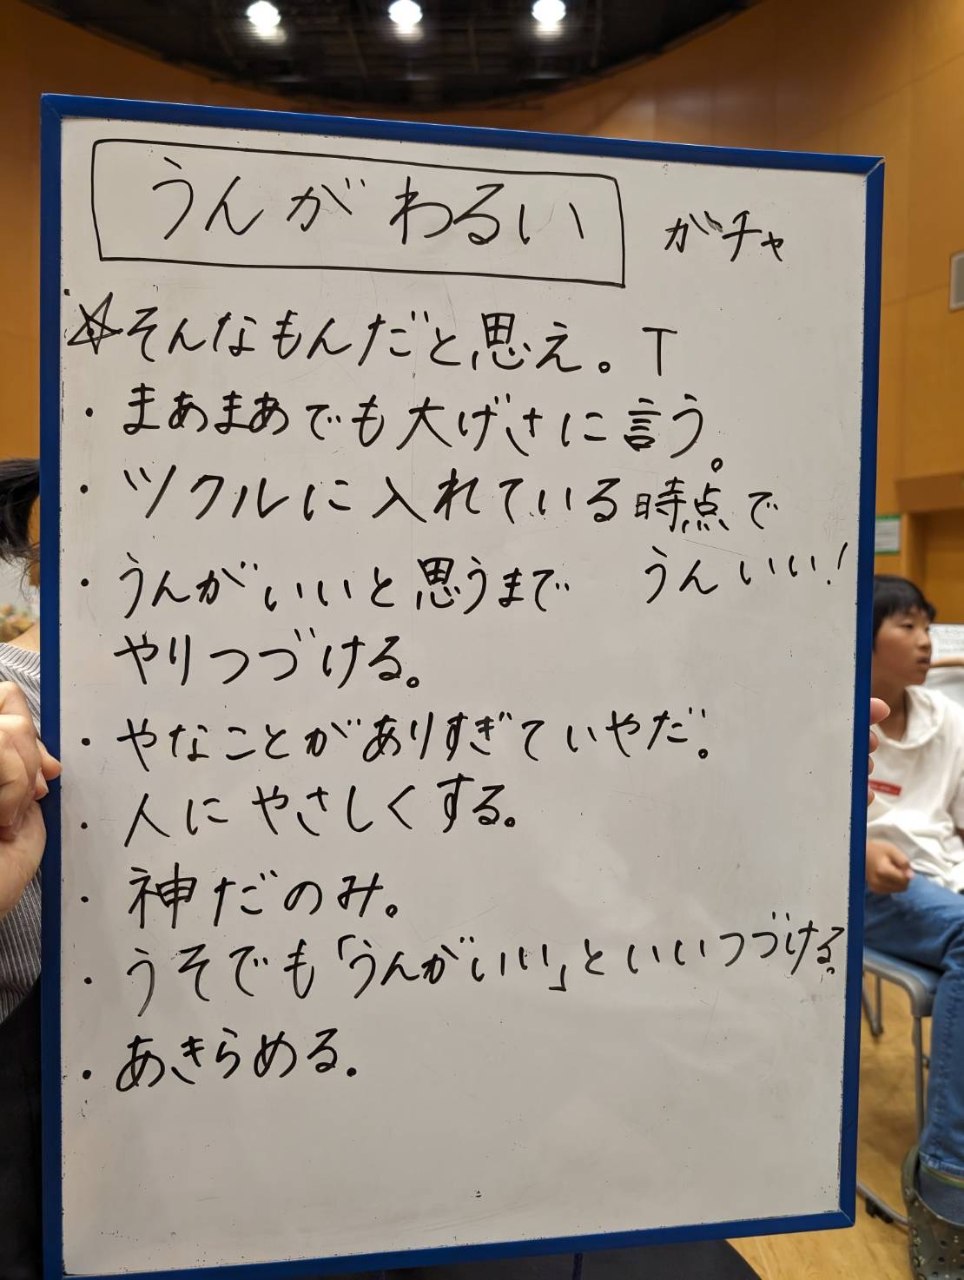 うんがわるい ガチャ
☆そんなもんだと思え。T
・まあまあでも大げさに言う。
・ツクルに入れている時点で
うんいい!
・うんがいいと思うまで
やりつづける。
・やなことがありすぎていやだ。
・人にやさしくする。
・神だのみ。
・うそでも「うんがいい」といいつづける。
・あきらめる。